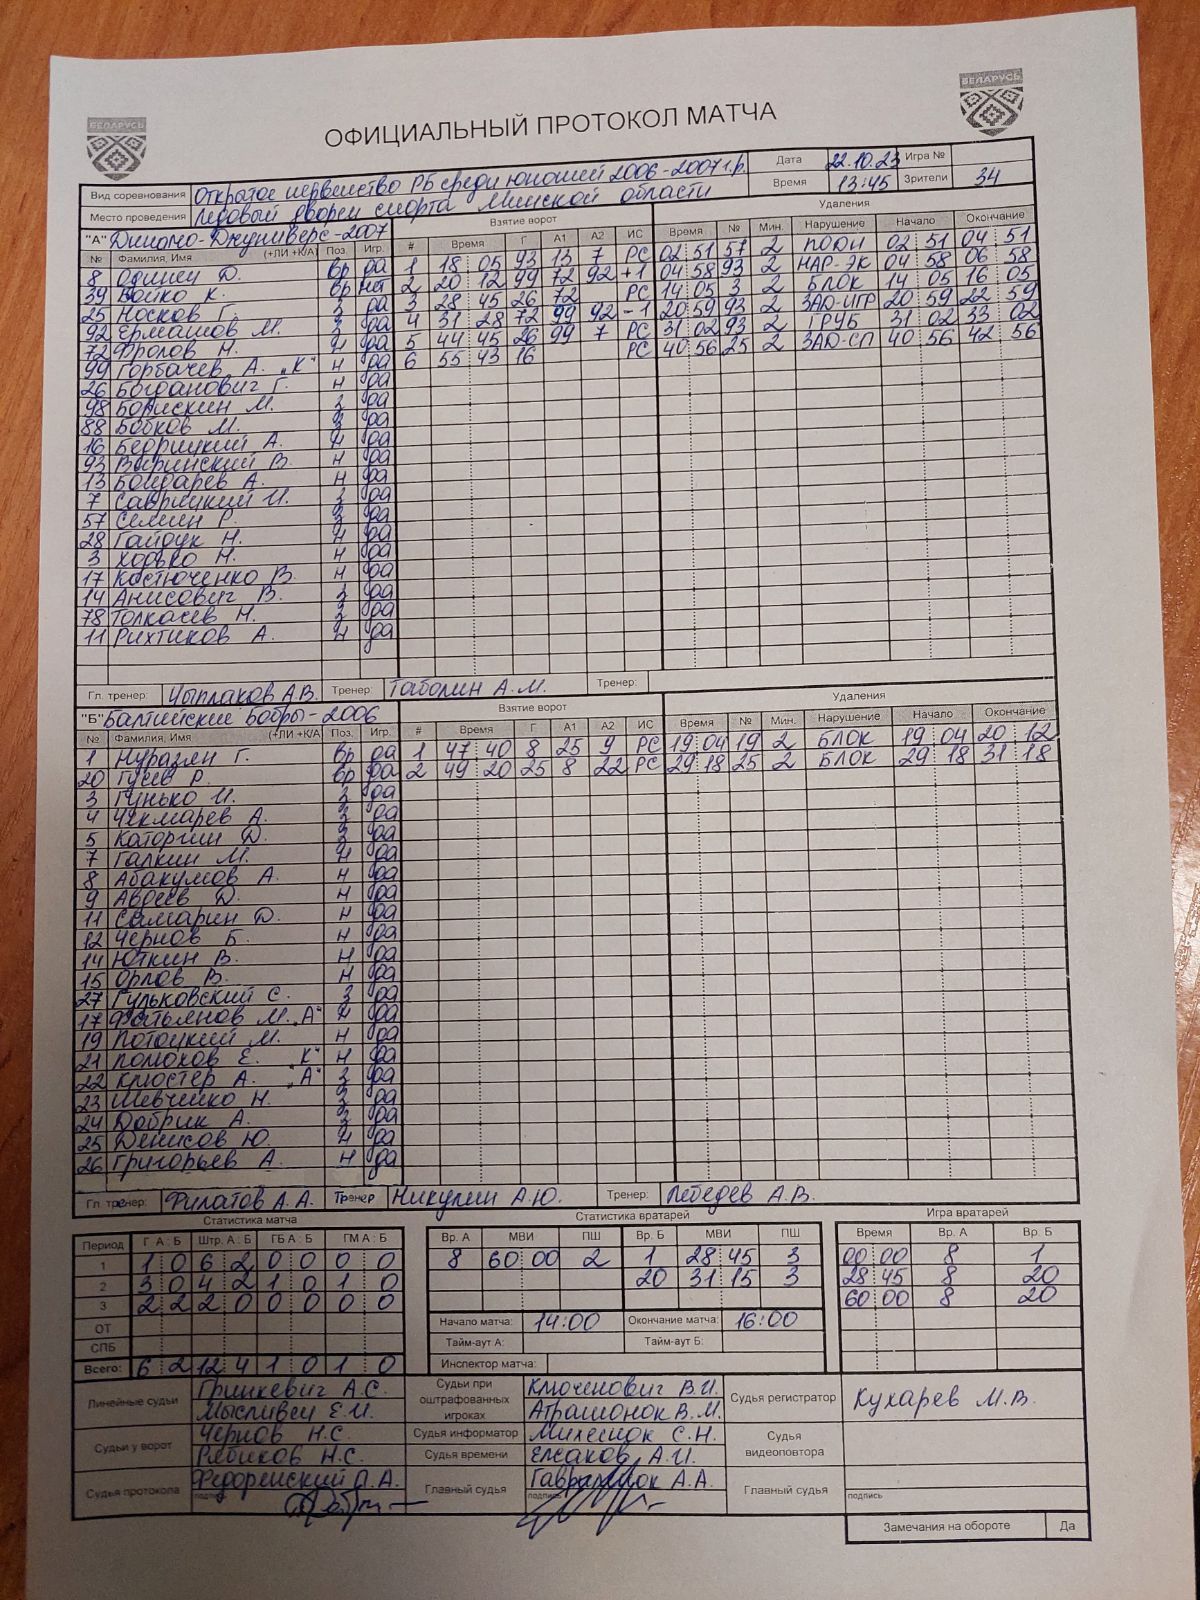 БЕЛАРУСЬ
БЕЛАРУСЬ
ОФИЦИАЛЬНЫЙ ПРОТОКОЛ МАТЧА
Вид соревнования Открытое первенство РБ среди юношей 2006-2007 г.р. Дата 22.10.23 Игра №
Место проведения Ледовый дворец спорта Минской области Время 13:45 Зрители 34
"А" Динамо-Джуниверс-2007 Взятие ворот Удаления
№ Фамилия, Имя (+ЛИ +К/А) Поз. Игр. # Время Г А1 А2 ИС Время № Мин. Нарушение Начало Окончание
8 Одинец Д. Вр да 1 18 05 93 13 7 РС 02 51 57 2 ПОДН 02 51 04 51
39 Бойко К. Вр нет 2 20 12 99 72 92 +1 04 58 93 2 НАР-ЭК 04 58 06 58
25 Носков Г. З да 3 28 45 26 72 РС 14 05 3 2 БЛОК 14 05 16 05
92 Ермашов М. З да 4 31 28 72 99 92 -1 20 59 93 2 ЗАД-ИГР 20 59 22 59
72 Фролов Н. Н да 5 44 45 26 99 7 РС 31 02 93 2 ГРУБ 31 02 33 02
99 Горбачев А. "К" Н да 6 55 43 16 РС 40 56 25 2 ЗАД-СП 40 56 42 56
26 Богданович Г. Н да
98 Борискин М. З да
88 Бобков М. З да
16 Бедрицкий А. Н да
93 Виринский В. Н да
13 Бондарев А. Н да
7 Саврицкий И. З да
57 Семен Р. З да
28 Гайдук Н. Н да
3 Ходько Н. Н да
17 Костюченко В. Н да
14 Анисович В. З да
78 Толкачев Н. З да
11 Рихтиков А. Н да
Гл. тренер: Цыплаков А.В. Тренер: Таболин А.М. Тренер:
"Б" Балтийские Бобры-2006 Взятие ворот Удаления
№ Фамилия, Имя (+ЛИ +К/А) Поз. Игр. # Время Г А1 А2 ИС Время № Мин. Нарушение Начало Окончание
1 Нуразян Г. Вр да 1 47 40 8 25 9 РС 19 04 19 2 БЛОК 19 04 20 12
20 Гусев Р. Вр да 2 49 20 25 8 22 РС 29 18 25 2 БЛОК 29 18 31 18
3 Гунько И. З да
4 Чекмарев А. З да
5 Каторгин Д. З да
7 Галкин М. Н да
8 Абакумов А. Н да
9 Авдеев Д. Н да
11 Самарин Д. Н да
12 Чернов Б. Н да
14 Юткин В. Н да
15 Орлов В. Н да
27 Гульковский С. З да
17 Фатьянов М. "А" Н да
19 Потоцкий М. Н да
21 Помохов Е. "К" Н да
22 Клюстер А. "А" З да
23 Шевченко Н. З да
24 Добрик А. З да
25 Денисов Ю. Н да
26 Григорьев А. Н да
Гл. тренер: Филатов А.А. Тренер Никулин А.Ю. Тренер: Лебедев А.В.
Статистика матча Статистика вратарей Игра вратарей
Период Г А : Б Штр. А : Б ГБ А : Б ГМ А : Б Вр. А МВИ ПШ Вр. Б МВИ ПШ Время Вр. А Вр. Б
1 1 0 6 2 0 0 0 0 8 60 00 2 1 28 45 3 00 00 8 1
2 3 0 4 2 1 0 1 0 20 31 15 3 28 45 8 20
3 2 2 2 0 0 0 0 0 60 00 8 20
ОТ Начало матча: 14:00 Окончание матча: 16:00
СПБ Тайм-аут А: Тайм-аут Б:
Всего: 6 2 12 4 1 0 1 0 Инспектор матча:
Линейные судьи Гринкевич А.С. Судьи при оштрафованных игроках Ключенович В.И. Судья регистратор Кухарев М.В.
Мысливец Е.И. Аграшонок В.М.
Судьи у ворот Чернов Н.С. Судья информатор Михенок С.Н. Судья видеоповтора
Рябиков Н.С. Судья времени Елсаков А.И.
Судья протокола Федоренский П.А. Главный судья Гавриленок А.А. Главный судья
подпись подпись подпись
Замечания на обороте Да